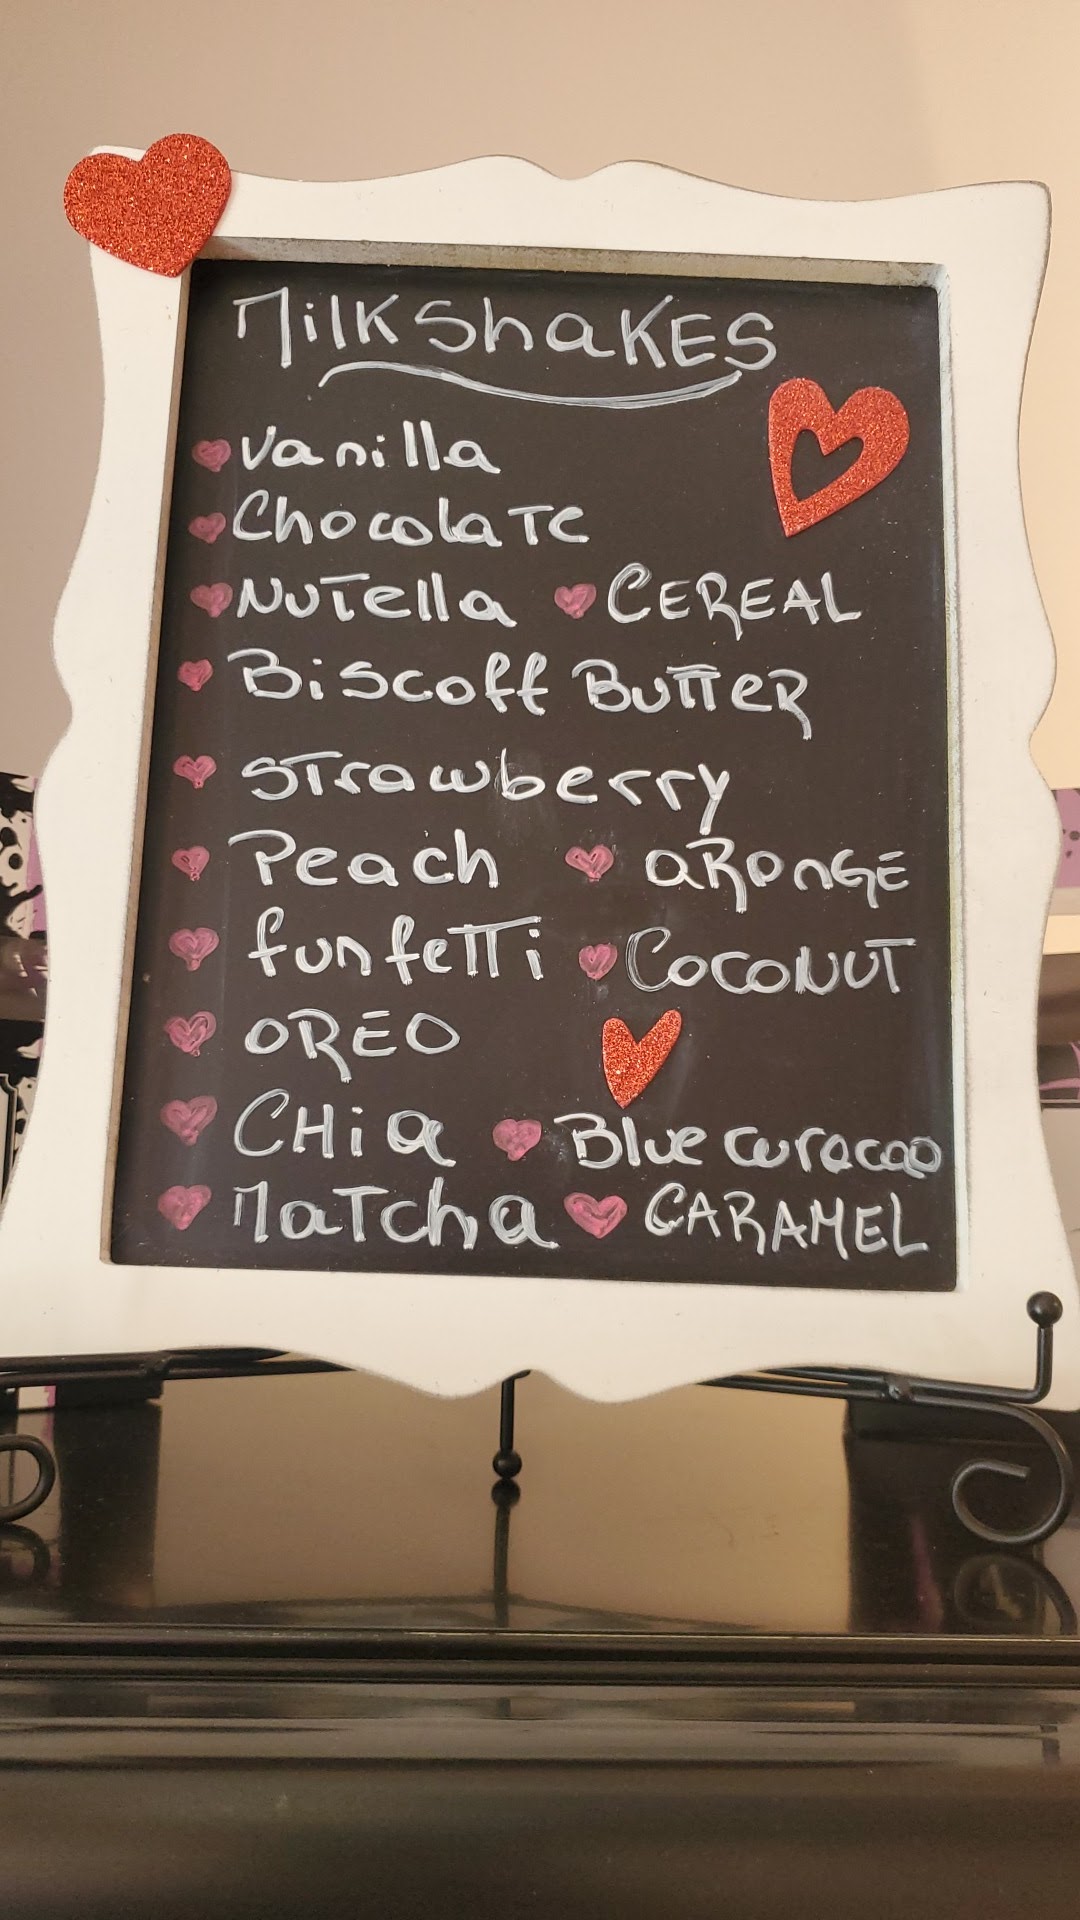 MilkShaKES
Vanilla
ChocolaTe
NuTella CEREAL
Biscoff BuTTeR
STrawberry
Peach aRonGE
funfeTTi CocoNUT
OREO
CHia Blue curacao
MaTcha CARAMEL